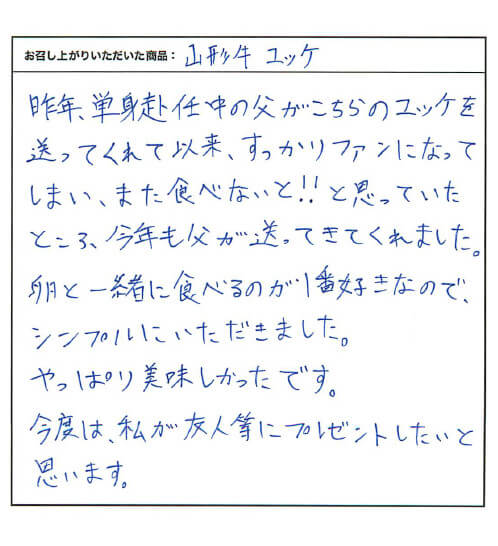 お召し上がりいただいた商品： 山形牛 ユッケ
昨年、単身赴任中の父がこちらのユッケを
送ってくれて以来、すっかりファンになって
しまい、また食べないと!!と思っていた
ところ、今年も父が送ってきてくれました。
卵と一緒に食べるのが1番好きなので、
シンプルにいただきました。
やっぱり美味しかったです。
今度は、私が友人等にプレゼントしたいと
思います。